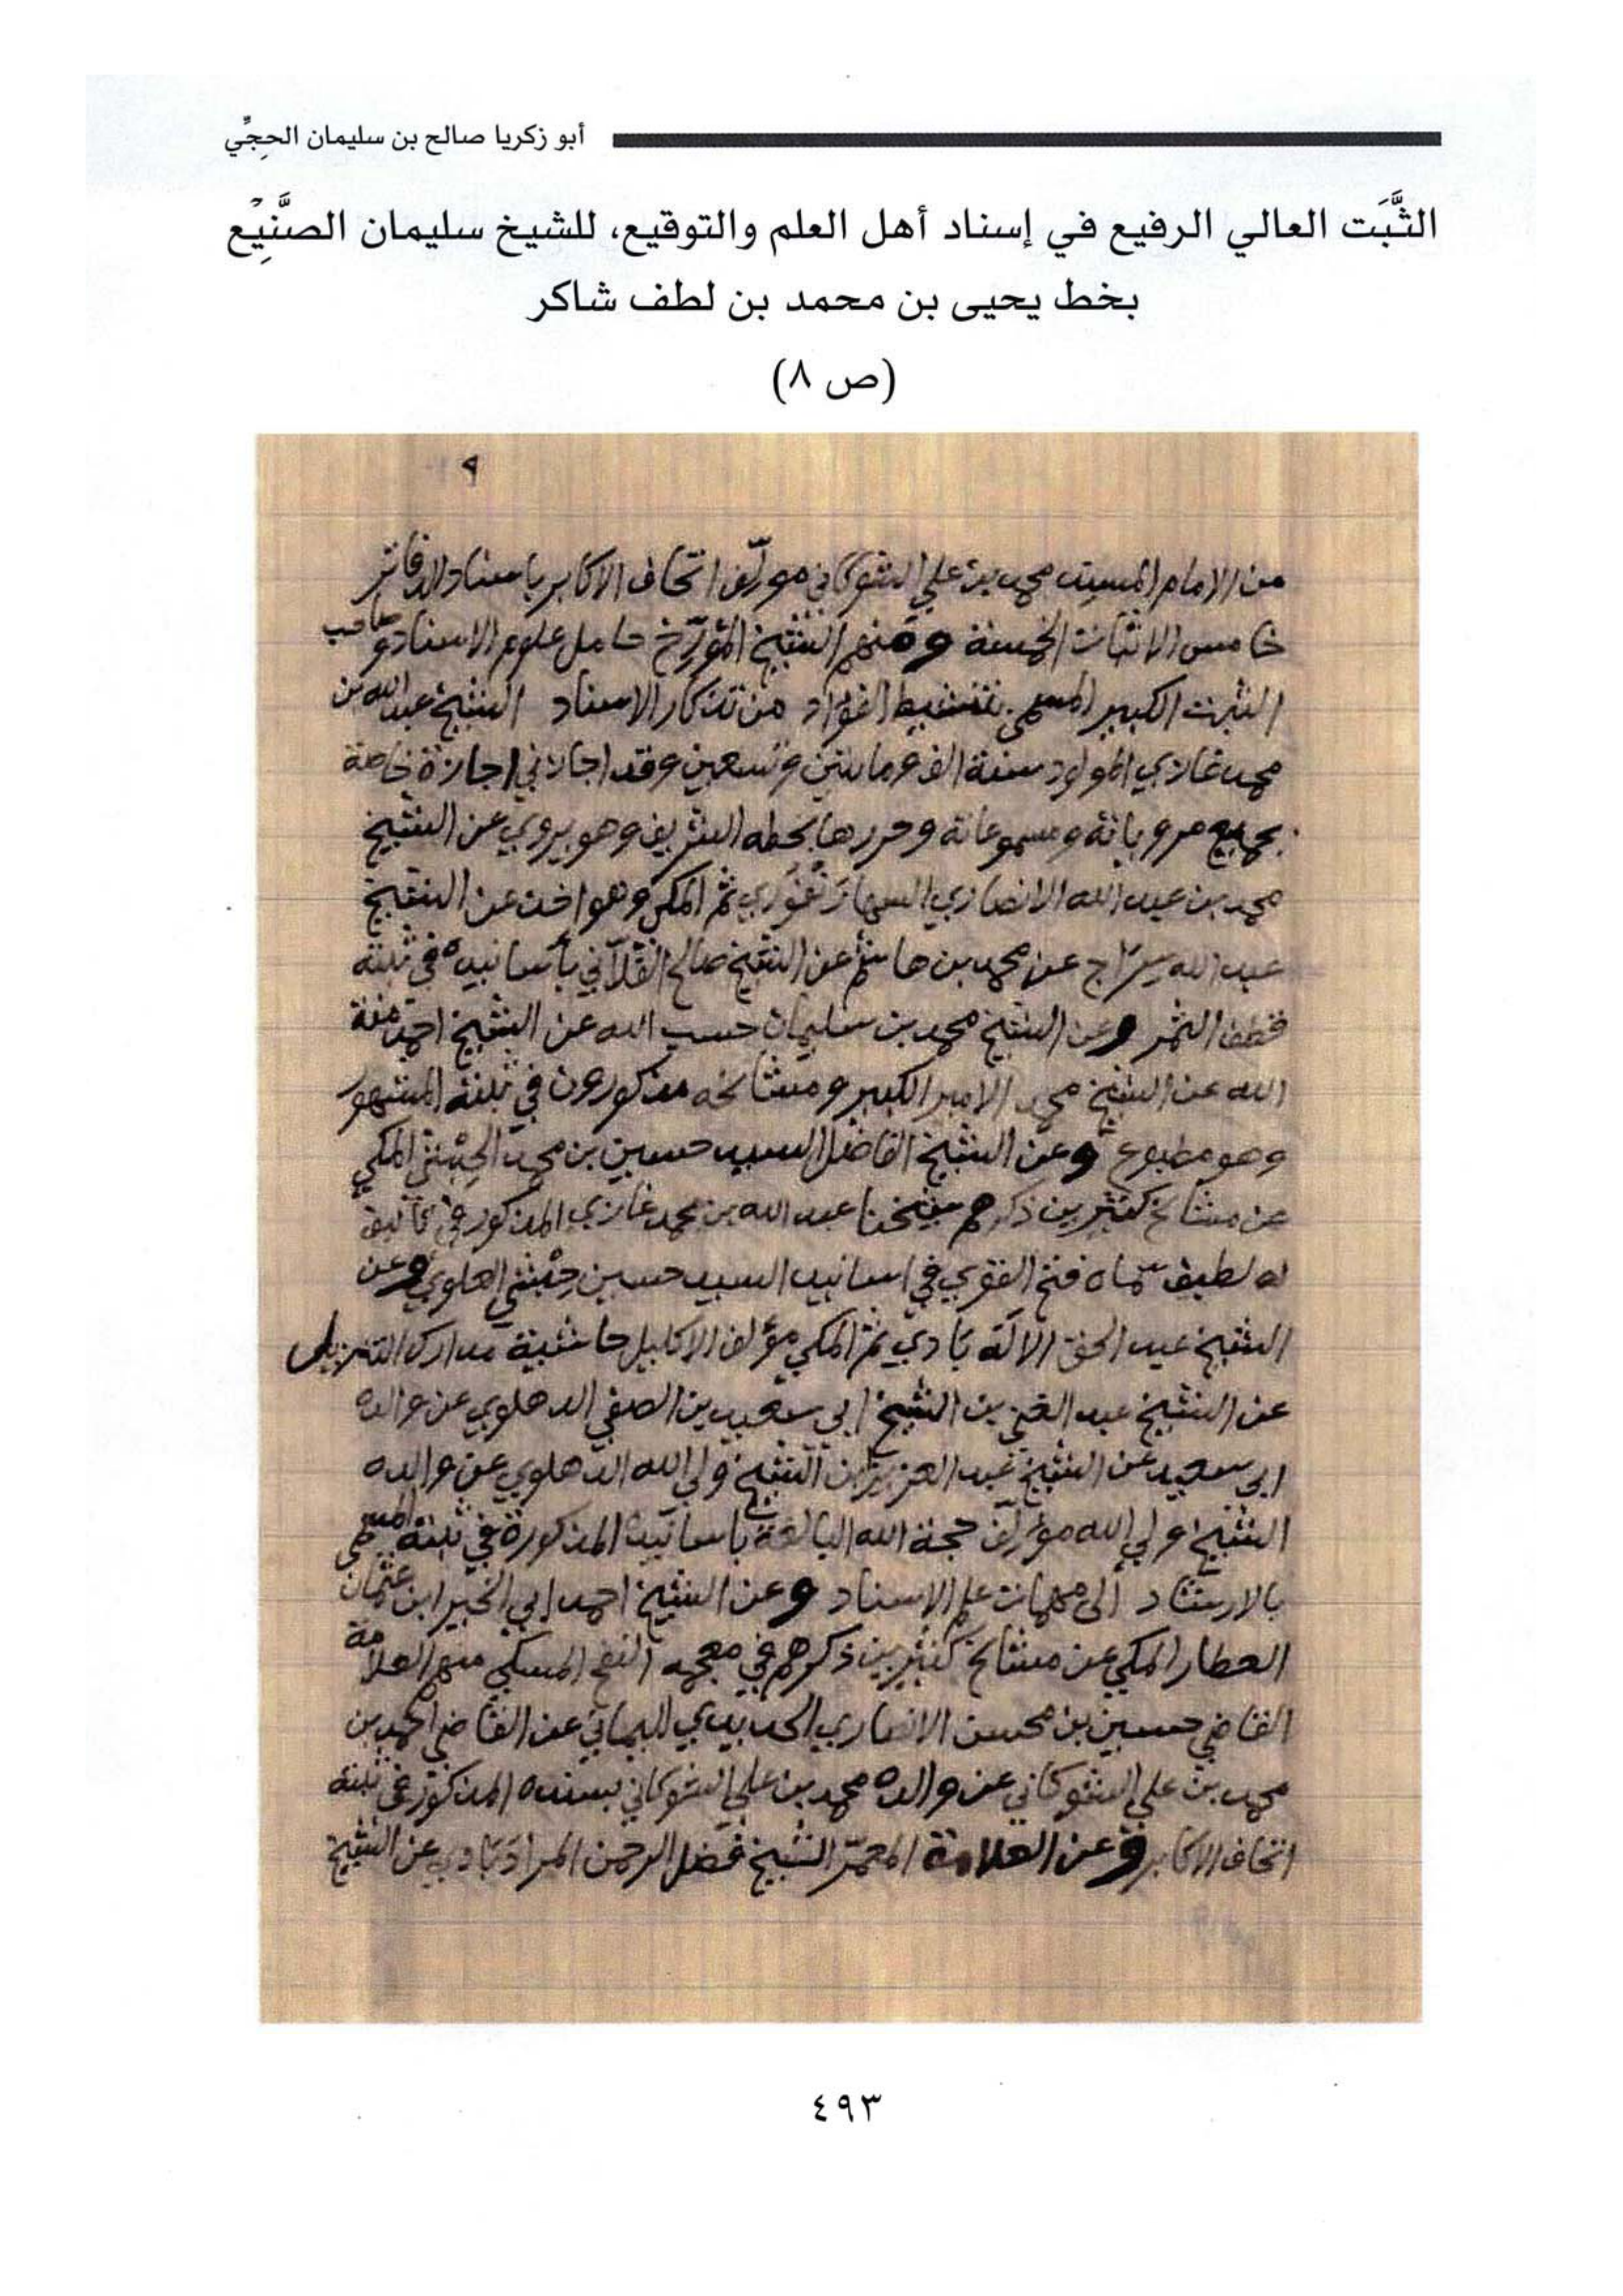 أبو زكريا صالح بن سليمان الحِجِّي
الثَّبَت العالي الرفيع في إسناد أهل العلم والتوقيع، للشيخ سليمان الصَّنِيْع
بخط يحيى بن محمد بن لطف شاكر
(ص ٨)
٩
من الامام محمد بن علي الشوكاني مؤلّف اتحاف الاكابر باسناد الدفاتر
خامس الاثبات الخمسة ومنهم الشيخ المؤرّخ حامل علوم الاسناد وصاحب
الثبت الكبير المسمى بتنشيط الفؤاد من تذكار الاسناد الشيخ عبد الله بن
محمد غازي المولود سنة الف ومائتين وتسعين وقد اجازني اجازة خاصة
بجميع مروياته ومسموعاته وحررها بخطه الشريف وهو يروي عن الشيخ
محمد بن عبد الله الانصاري السهارَنْفُوري ثم المكي وهو اخذ عن الشيخ
عبد الله سِرَاج عن محمد بن هاشم عن الشيخ صالح الفُلَّاني بأسانيده في ثبته
قطف الثمر وعن الشيخ محمد بن سليمان حسب الله عن الشيخ احمد منة
الله عن الشيخ محمد الامير الكبير ومشائخه مذكورون في ثبته المشهور
وهو مطبوع وعن الشيخ الفاضل السيد حسين بن محمد الحِبْشي المكي
عن مشائخ كثيرين ذكرهم شيخنا عبد الله بن محمد غازي المذكور في تأليف
له لطيف سماه فتح القوي في اسانيد السيد حسين حِبْشي العلوي وعن
الشيخ عبد الحق الالَه بَادي ثم المكي مؤلف الاكليل حاشية مدارك التنزيل
عن الشيخ عبد الغني بن الشيخ ابي سعيد بن الصفي الدهلوي عن والده
ابي سعيد عن الشيخ عبد العزيز ابن الشيخ ولي الله الدهلوي عن والده
الشيخ ولي الله مؤلف حجة الله البالغة بأسانيده المذكورة في ثبته المسمى
بالارشاد إلى مهمات علم الاسناد وعن الشيخ احمد ابي الخير ابن عثمان
العطار المكي عن مشائخ كثيرين ذكرهم في معجمه النفح المسكي منهم العلامة
القاضي حسين بن محسن الانصاري الحديدي اليماني عن القاضي احمد بن
محمد بن علي الشوكاني عن والده محمد بن علي الشوكاني بسنده المذكور في ثبته
اتحاف الاكابر وعن العلامة المعمّر الشيخ فضل الرحمن المرادَبَادي عن الشيخ
٤٩٣